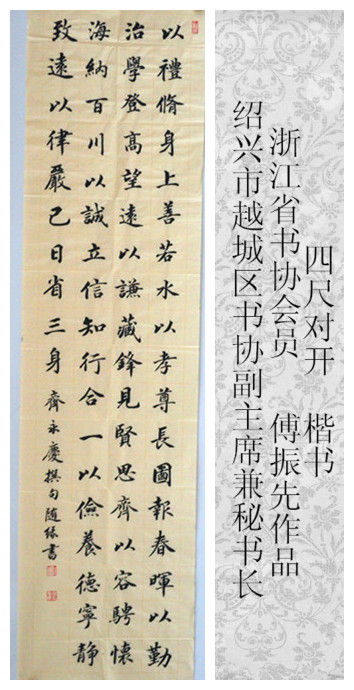 以禮脩身上善若水以孝尊長圖報春暉以勤
治學登高望遠以謙藏鋒見賢思齊以容騁懷
海納百川以誠立信知行合一以儉養德寧靜
致遠以律嚴己日省三身 齊永慶撰句随緣書
四尺对开 楷书
浙江省书协会员 傅振先作品
绍兴市越城区书协副主席兼秘书长